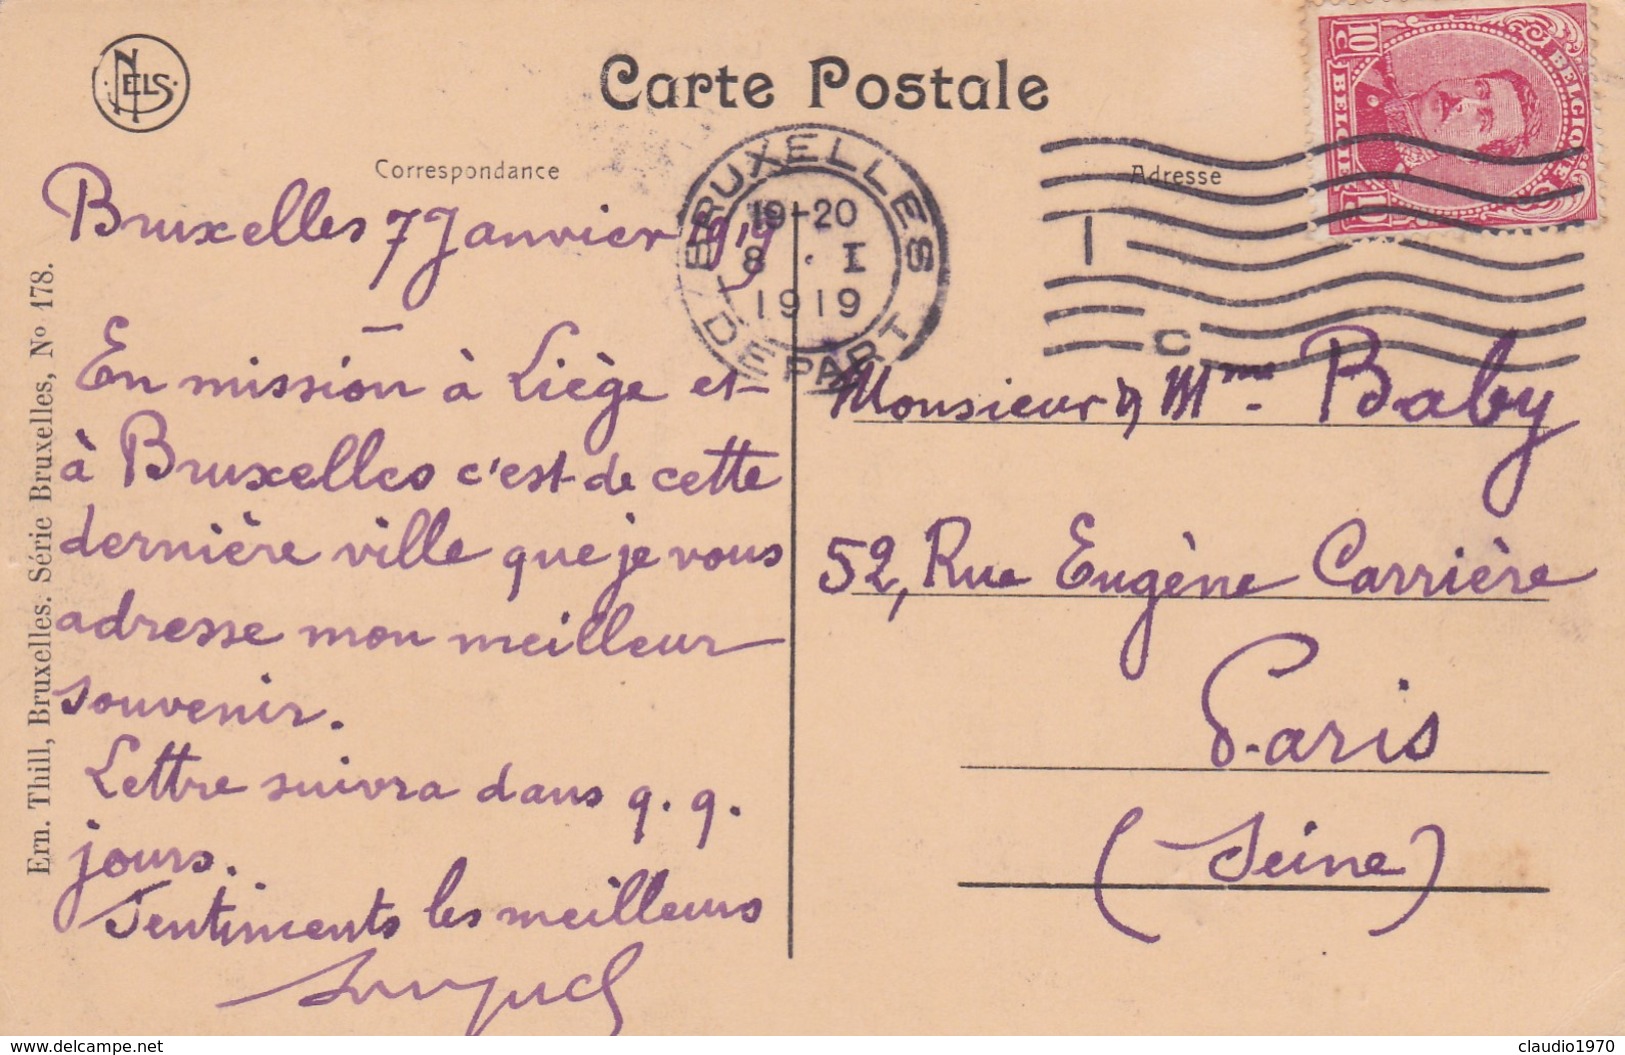 NELS
Carte Postale
Correspondance
Adresse
BELGIQUE
BELGIË
10 C
BRUXELLES
19-20
8 . I
1919
DEPART
1 C
Bruxelles 7 Janvier 1919
En mission à Liège et
à Bruxelles c'est de cette
dernière ville que je vous
adresse mon meilleur
souvenir.
Lettre suivra dans q. q.
jours.
Sentiments les meilleurs
Monsieur & Mme Baby
52, Rue Eugène Carrière
Paris
(Seine)
Ern. Thill, Bruxelles. Série Bruxelles, No 178.
www.delcampe.net
claudio1970